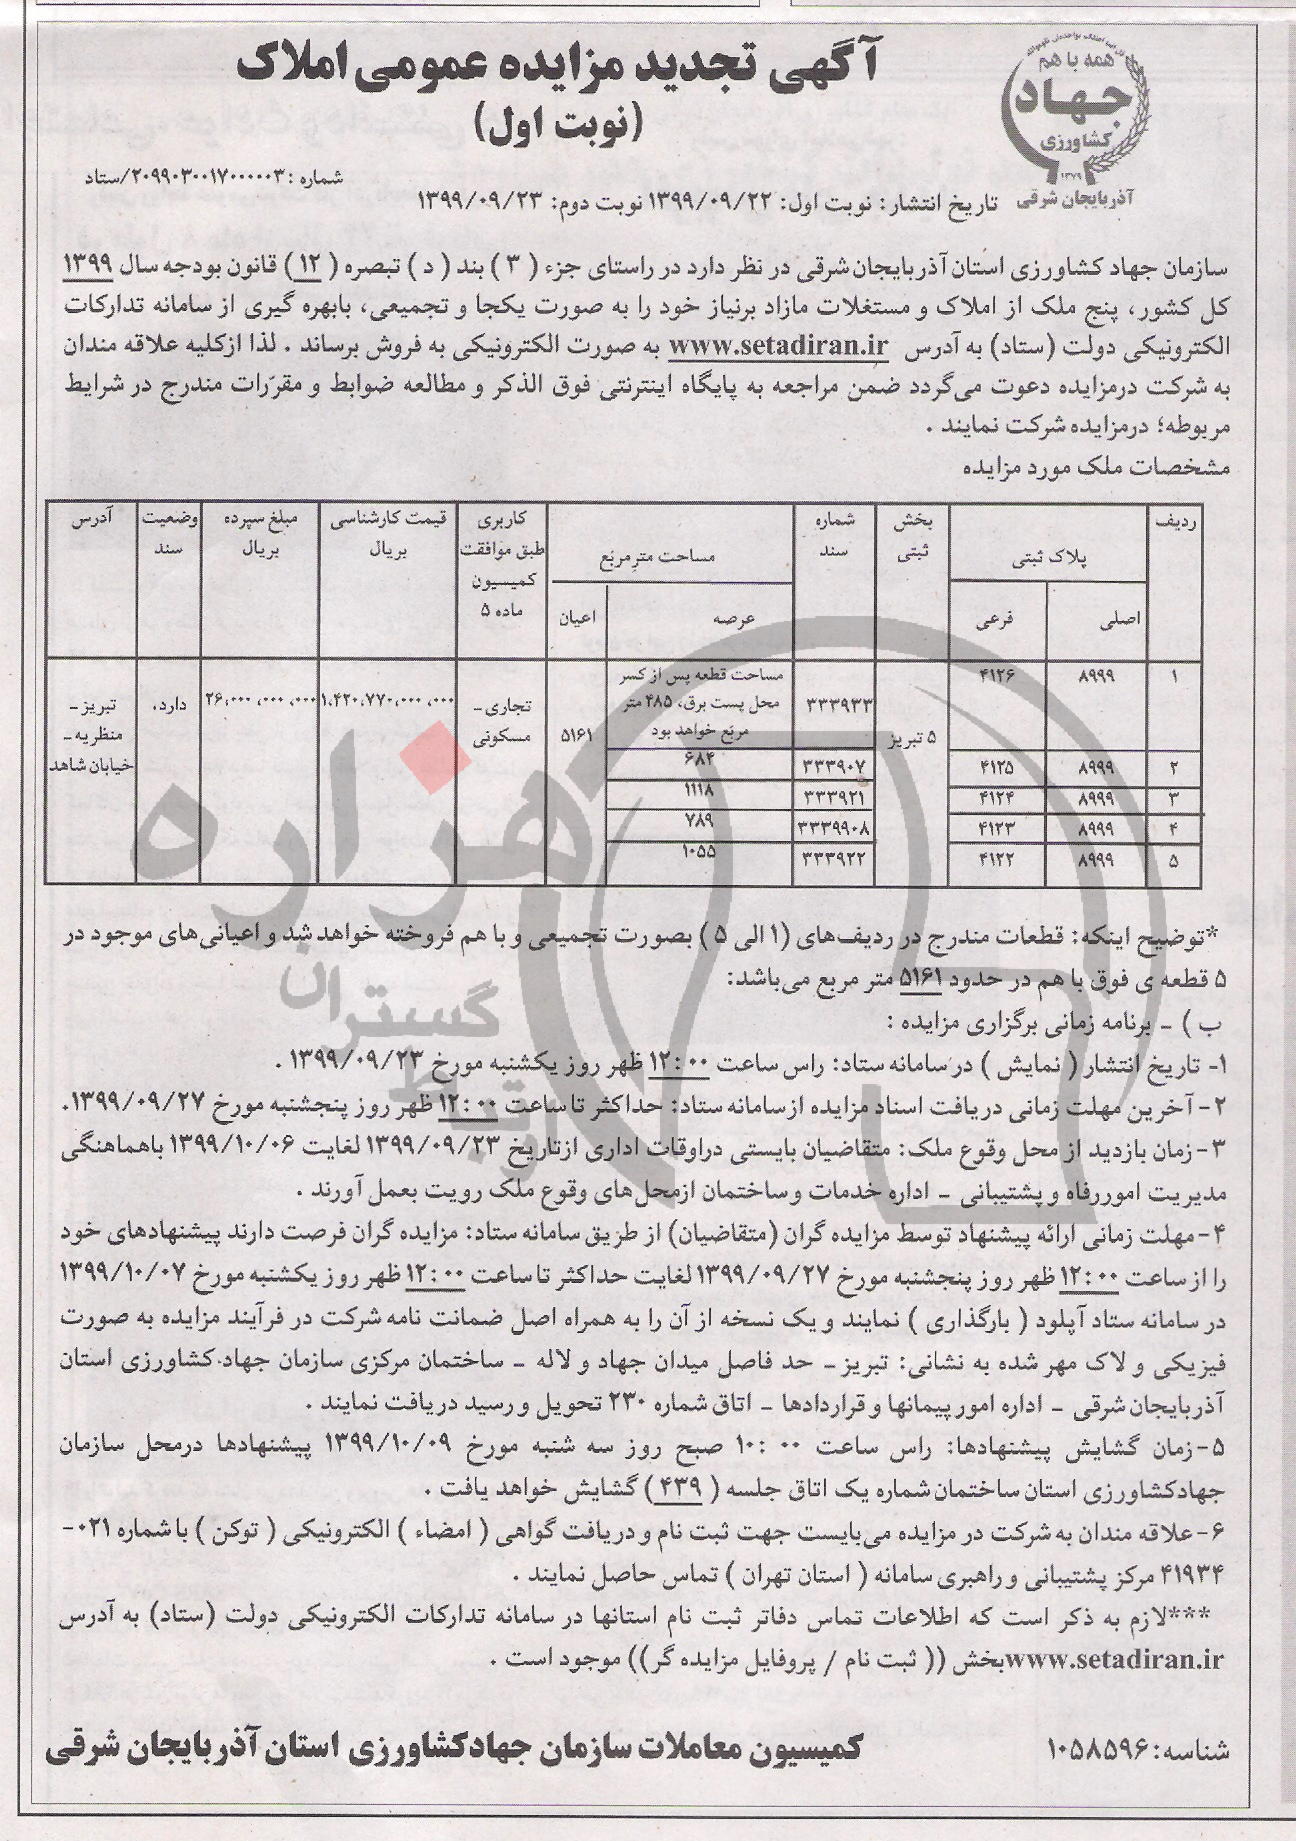 همه با هم
جهاد
کشاورزی
۱۳۷۹
آذربایجان شرقی
آگهی تجدید مزایده عمومی املاک
(نوبت اول)
شماره : ۲۰۹۹۰۳۰۰۱۷۰۰۰۰۰۳/ستاد
تاریخ انتشار: نوبت اول: ۱۳۹۹/۰۹/۲۲ نوبت دوم: ۱۳۹۹/۰۹/۲۳
سازمان جهاد کشاورزی استان آذربایجان‌شرقی در نظر دارد در راستای جزء ( ۳ ) بند ( د ) تبصره ( ۱۲ ) قانون بودجه سال ۱۳۹۹
کل کشور، پنج ملک از املاک و مستغلات مازاد برنیاز خود را به صورت یکجا و تجمیعی، بابهره گیری از سامانه تدارکات
الکترونیکی دولت (ستاد) به آدرس www.setadiran.ir به صورت الکترونیکی به فروش برساند . لذا ازکلیه علاقه مندان
به شرکت درمزایده دعوت می‌گردد ضمن مراجعه به پایگاه اینترنتی فوق الذکر و مطالعه ضوابط و مقرّرات مندرج در شرایط
مربوطه؛ درمزایده شرکت نمایند .
مشخصات ملک مورد مزایده
ردیف پلاک ثبتی بخش ثبتی شماره سند مساحت مترمربّع کاربری طبق موافقت کمیسیون ماده ۵ قیمت کارشناسی بریال مبلغ سپرده بریال وضعیت سند آدرس
اصلی فرعی عرصه اعیان
۱ ۸۹۹۹ ۴۱۲۶ ۵ تبریز ۳۳۳۹۳۳ مساحت قطعه پس از کسر محل پست برق، ۴۸۵ متر مربّع خواهد بود ۵۱۶۱ تجاری - مسکونی ۱،۴۲۰،۷۷۰،۰۰۰،۰۰۰ ۲۶،۰۰۰،۰۰۰،۰۰۰ دارد. تبریز - منظریه - خیابان شاهد
۲ ۸۹۹۹ ۴۱۲۵ ۳۳۳۹۰۷ ۶۸۴
۳ ۸۹۹۹ ۴۱۲۴ ۳۳۳۹۲۱ ۱۱۱۸
۴ ۸۹۹۹ ۴۱۲۳ ۳۳۳۹۹۰۸ ۷۸۹
۵ ۸۹۹۹ ۴۱۲۲ ۳۳۳۹۲۲ ۱۰۵۵
*توضیح اینکه: قطعات مندرج در ردیف‌های (۱ الی ۵ ) بصورت تجمیعی و با هم فروخته خواهد شد و اعیانی‌های موجود در
۵ قطعه ی فوق با هم در حدود ۵۱۶۱ متر مربع می‌باشد:
ب ) - برنامه زمانی برگزاری مزایده :
۱- تاریخ انتشار ( نمایش ) در سامانه ستاد: راس ساعت ۱۲:۰۰ ظهر روز یکشنبه مورخ ۱۳۹۹/۰۹/۲۳ .
۲- آخرین مهلت زمانی دریافت اسناد مزایده از سامانه ستاد: حداکثر تا ساعت ۱۲:۰۰ ظهر روز پنجشنبه مورخ ۱۳۹۹/۰۹/۲۷.
۳- زمان بازدید از محل وقوع ملک: متقاضیان بایستی دراوقات اداری ازتاریخ ۱۳۹۹/۰۹/۲۳ لغایت ۱۳۹۹/۱۰/۰۶ باهماهنگی
مدیریت اموررفاه و پشتیبانی - اداره خدمات و ساختمان ازمحل‌های وقوع ملک رویت بعمل آورند .
۴- مهلت زمانی ارائه پیشنهاد توسط مزایده گران (متقاضیان) از طریق سامانه ستاد: مزایده گران فرصت دارند پیشنهادهای خود
را از ساعت ۱۲:۰۰ ظهر روز پنجشنبه مورخ ۱۳۹۹/۰۹/۲۷ لغایت حداکثر تا ساعت ۱۲:۰۰ ظهر روز یکشنبه مورخ ۱۳۹۹/۱۰/۰۷
در سامانه ستاد آپلود ( بارگذاری ) نمایند و یک نسخه از آن را به همراه اصل ضمانت نامه شرکت در فرآیند مزایده به صورت
فیزیکی و لاک مهر شده به نشانی: تبریز - حد فاصل میدان جهاد و لاله - ساختمان مرکزی سازمان جهاد کشاورزی استان
آذربایجان شرقی - اداره امور پیمانها و قراردادها - اتاق شماره ۲۳۰ تحویل و رسید دریافت نمایند .
۵- زمان گشایش پیشنهادها: راس ساعت ۱۰:۰۰ صبح روز سه شنبه مورخ ۱۳۹۹/۱۰/۰۹ پیشنهادها درمحل سازمان
جهادکشاورزی استان ساختمان شماره یک اتاق جلسه ( ۴۳۹ ) گشایش خواهد یافت .
۶- علاقه مندان به شرکت در مزایده می‌بایست جهت ثبت نام و دریافت گواهی ( امضاء ) الکترونیکی ( توکن ) با شماره ۰۲۱-
۴۱۹۳۴ مرکز پشتیبانی و راهبری سامانه ( استان تهران ) تماس حاصل نمایند .
***لازم به ذکر است که اطلاعات تماس دفاتر ثبت نام استانها در سامانه تدارکات الکترونیکی دولت (ستاد) به آدرس
www.setadiran.ir بخش (( ثبت نام / پروفایل مزایده گر)) موجود است .
شناسه: ۱۰۵۸۵۹۶
کمیسیون معاملات سازمان جهادکشاورزی استان آذربایجان شرقی
هزاره
گستران